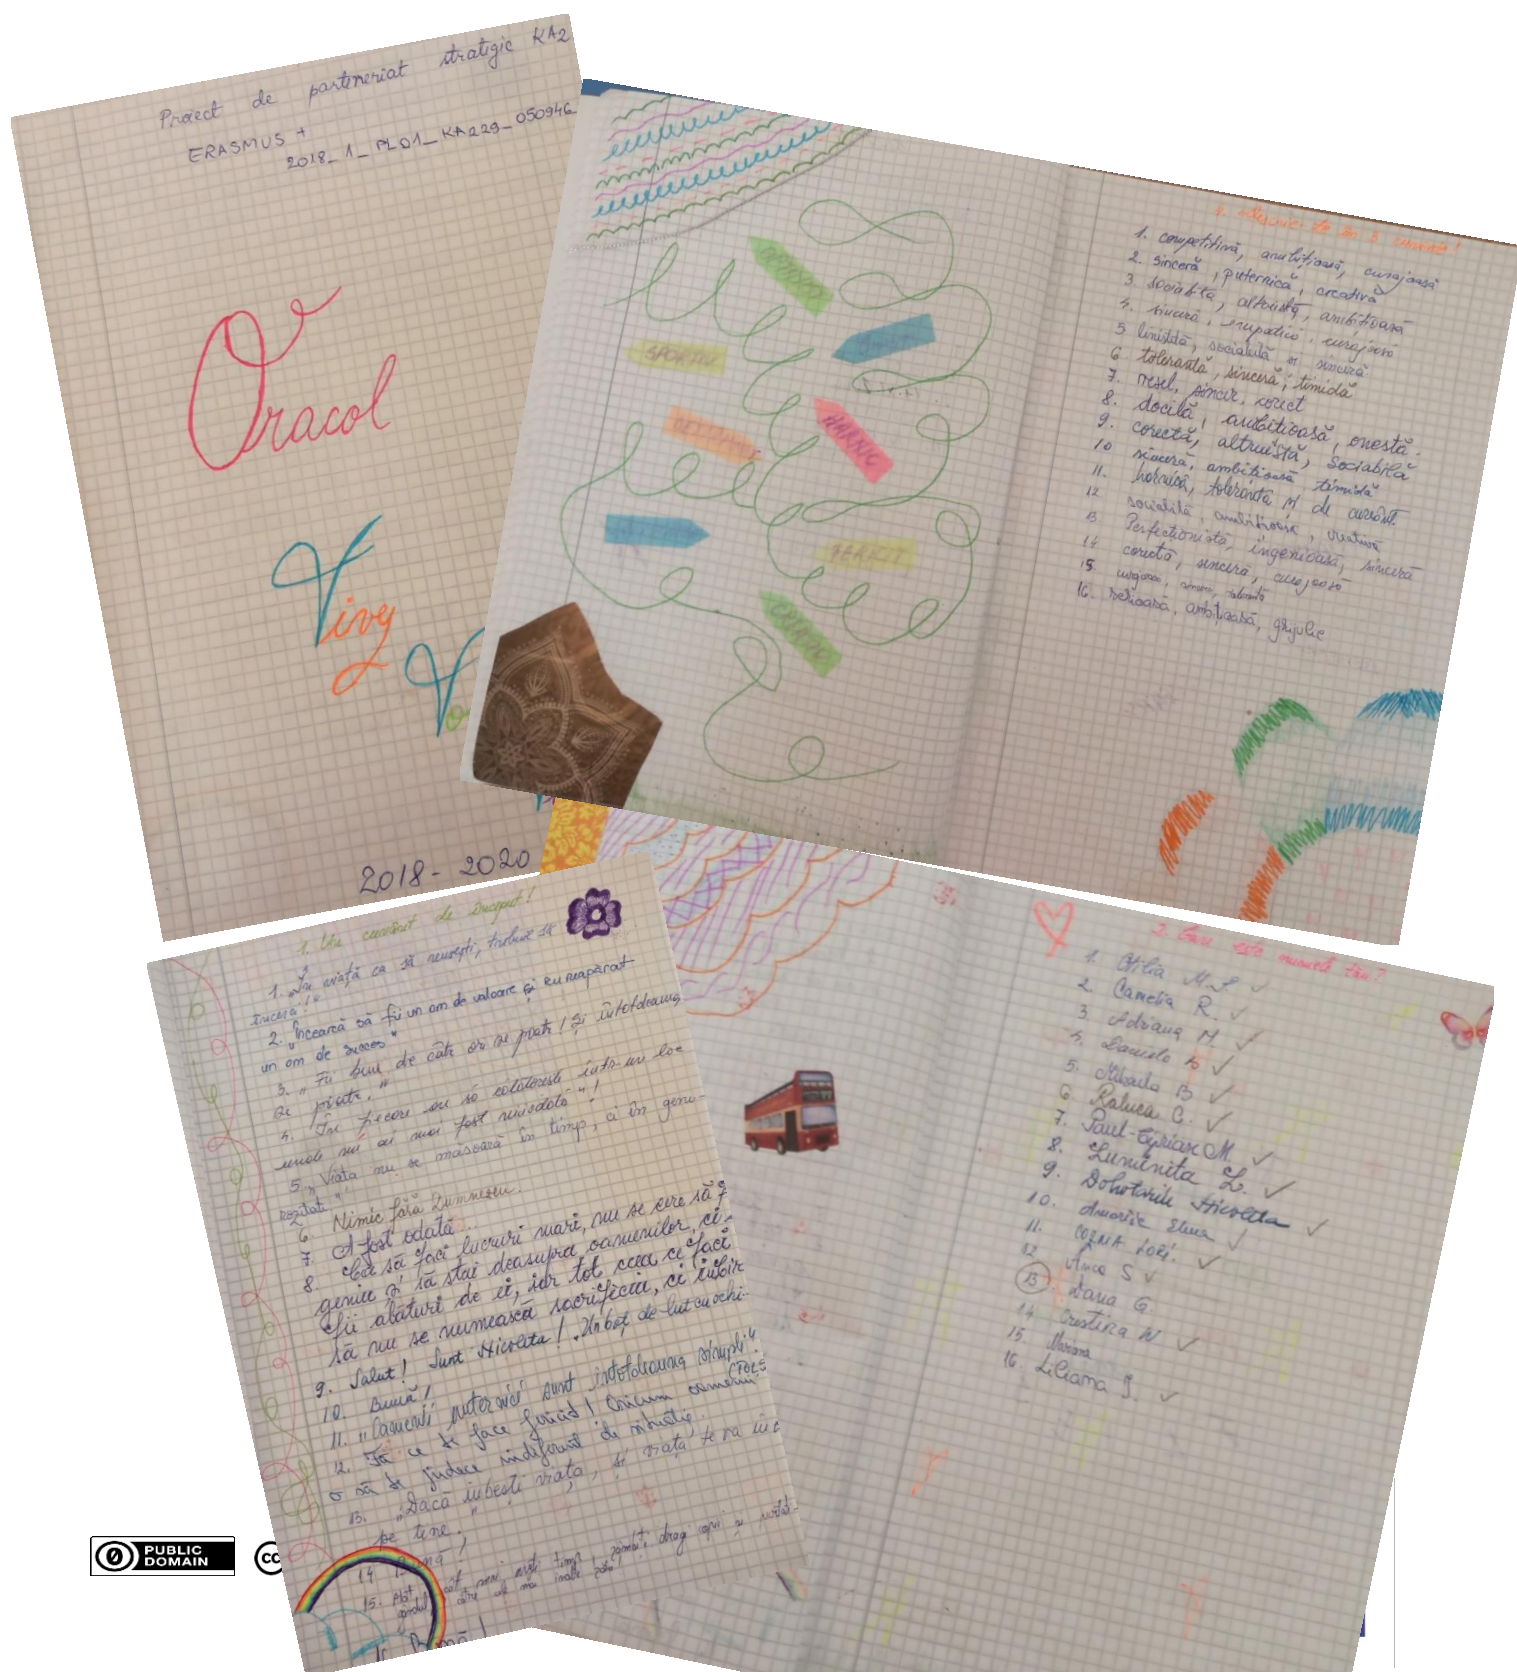 Proiect de parteneriat strategic KA2
ERASMUS +
2018_1_PL01_KA229_050946
Oracol
Vivez
2018 - 2020
SPORTIV
HARNIC
CREATIV
4. Descrie-te în 3 cuvinte!
1. competitivă, ambițioasă, curajoasă
2. sinceră, puternică, creativă
3. sociabilă, altruistă, ambițioasă
4. sinceră, empatică, curajoasă
5 liniștită, sociabilă și sinceră
6 tolerantă, sinceră, timidă
7. vesel, sincer, corect
8. docilă, ambițioasă, onestă.
9. corectă, altruistă, sociabilă
10 sinceră, ambițioasă timidă
11. harnică, tolerantă și de cuvânt.
12 sociabilă, ambițioasă, creativă
13 Perfecționistă, ingenioasă, sinceră
14 corectă, sinceră, curajoasă
15. curajoasă, sinceră, tolerantă
16. serioasă, ambițioasă, grijulie
1. Un cuvânt de început!
1. „În viață ca să reușești, trebuie să
încerci!"
2. „Încearcă să fii un om de valoare și nu neapărat
un om de succes"
3. „Fii bun de câte ori se poate! Și întotdeauna
se poate."
4. În fiecare an să călătorești într-un loc
unde nu ai mai fost niciodată"!
5. „Viața nu se măsoară în timp, ci în gene-
rozitate"
6 Nimic fără Dumnezeu.
7. A fost odată...
8. Ca să faci lucruri mari, nu se cere să f
geniu și să stai deasupra oamenilor, ci
fii alături de ei, iar tot ceea ce faci
să nu se numească sacrificiu, ci iubir
9. Salut! Sunt Nicoleta! Un boț de lut cu ochi...
10. Bună!
11. „Oamenii puternici sunt întotdeauna simpli."
12. Fă ce te face fericit! Oricum oamenii
o să te judece indiferent de situație.
13. „Dacă iubești viața, și viața te va iubi
pe tine."
14 Bună!
15. Atât cât mai aveți timp, zâmbiți dragi copii și
Bună!
2. Care este numele tău?
1. Otilia M.S.
2 Camelia R.
3. Adriana M
4. Daniela
5. Mihaela B
6 Raluca C.
7. Paul-Ciprian M.
8. Luminița Z.
9. Dohotariu Nicoleta
10. Amariie Elena
11. COZMA LORI.
12 Anca S
13. Daria G
14 Cristina N
15. Mariana
16. Liliana J.
PUBLIC
DOMAIN
cc